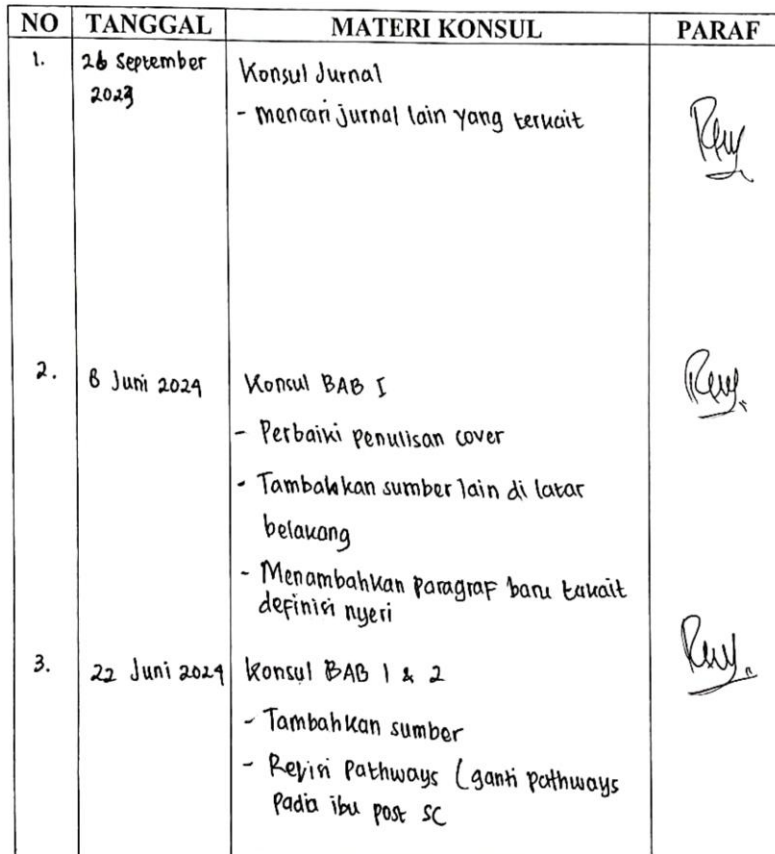 NO TANGGAL MATERI KONSUL PARAF
1. 26 September Konsul Jurnal
2023
- mencari jurnal lain yang terkait
2. 8 Juni 2024 Konsul BAB I
- Perbaiki penulisan cover
- Tambahkan sumber lain di latar
belakang
- Menambahkan paragraf baru takait
definisi nyeri
3. 22 Juni 2024 Konsul BAB 1 & 2
- Tambahkan sumber
- Revisi Pathways (ganti pathways
pada ibu post SC